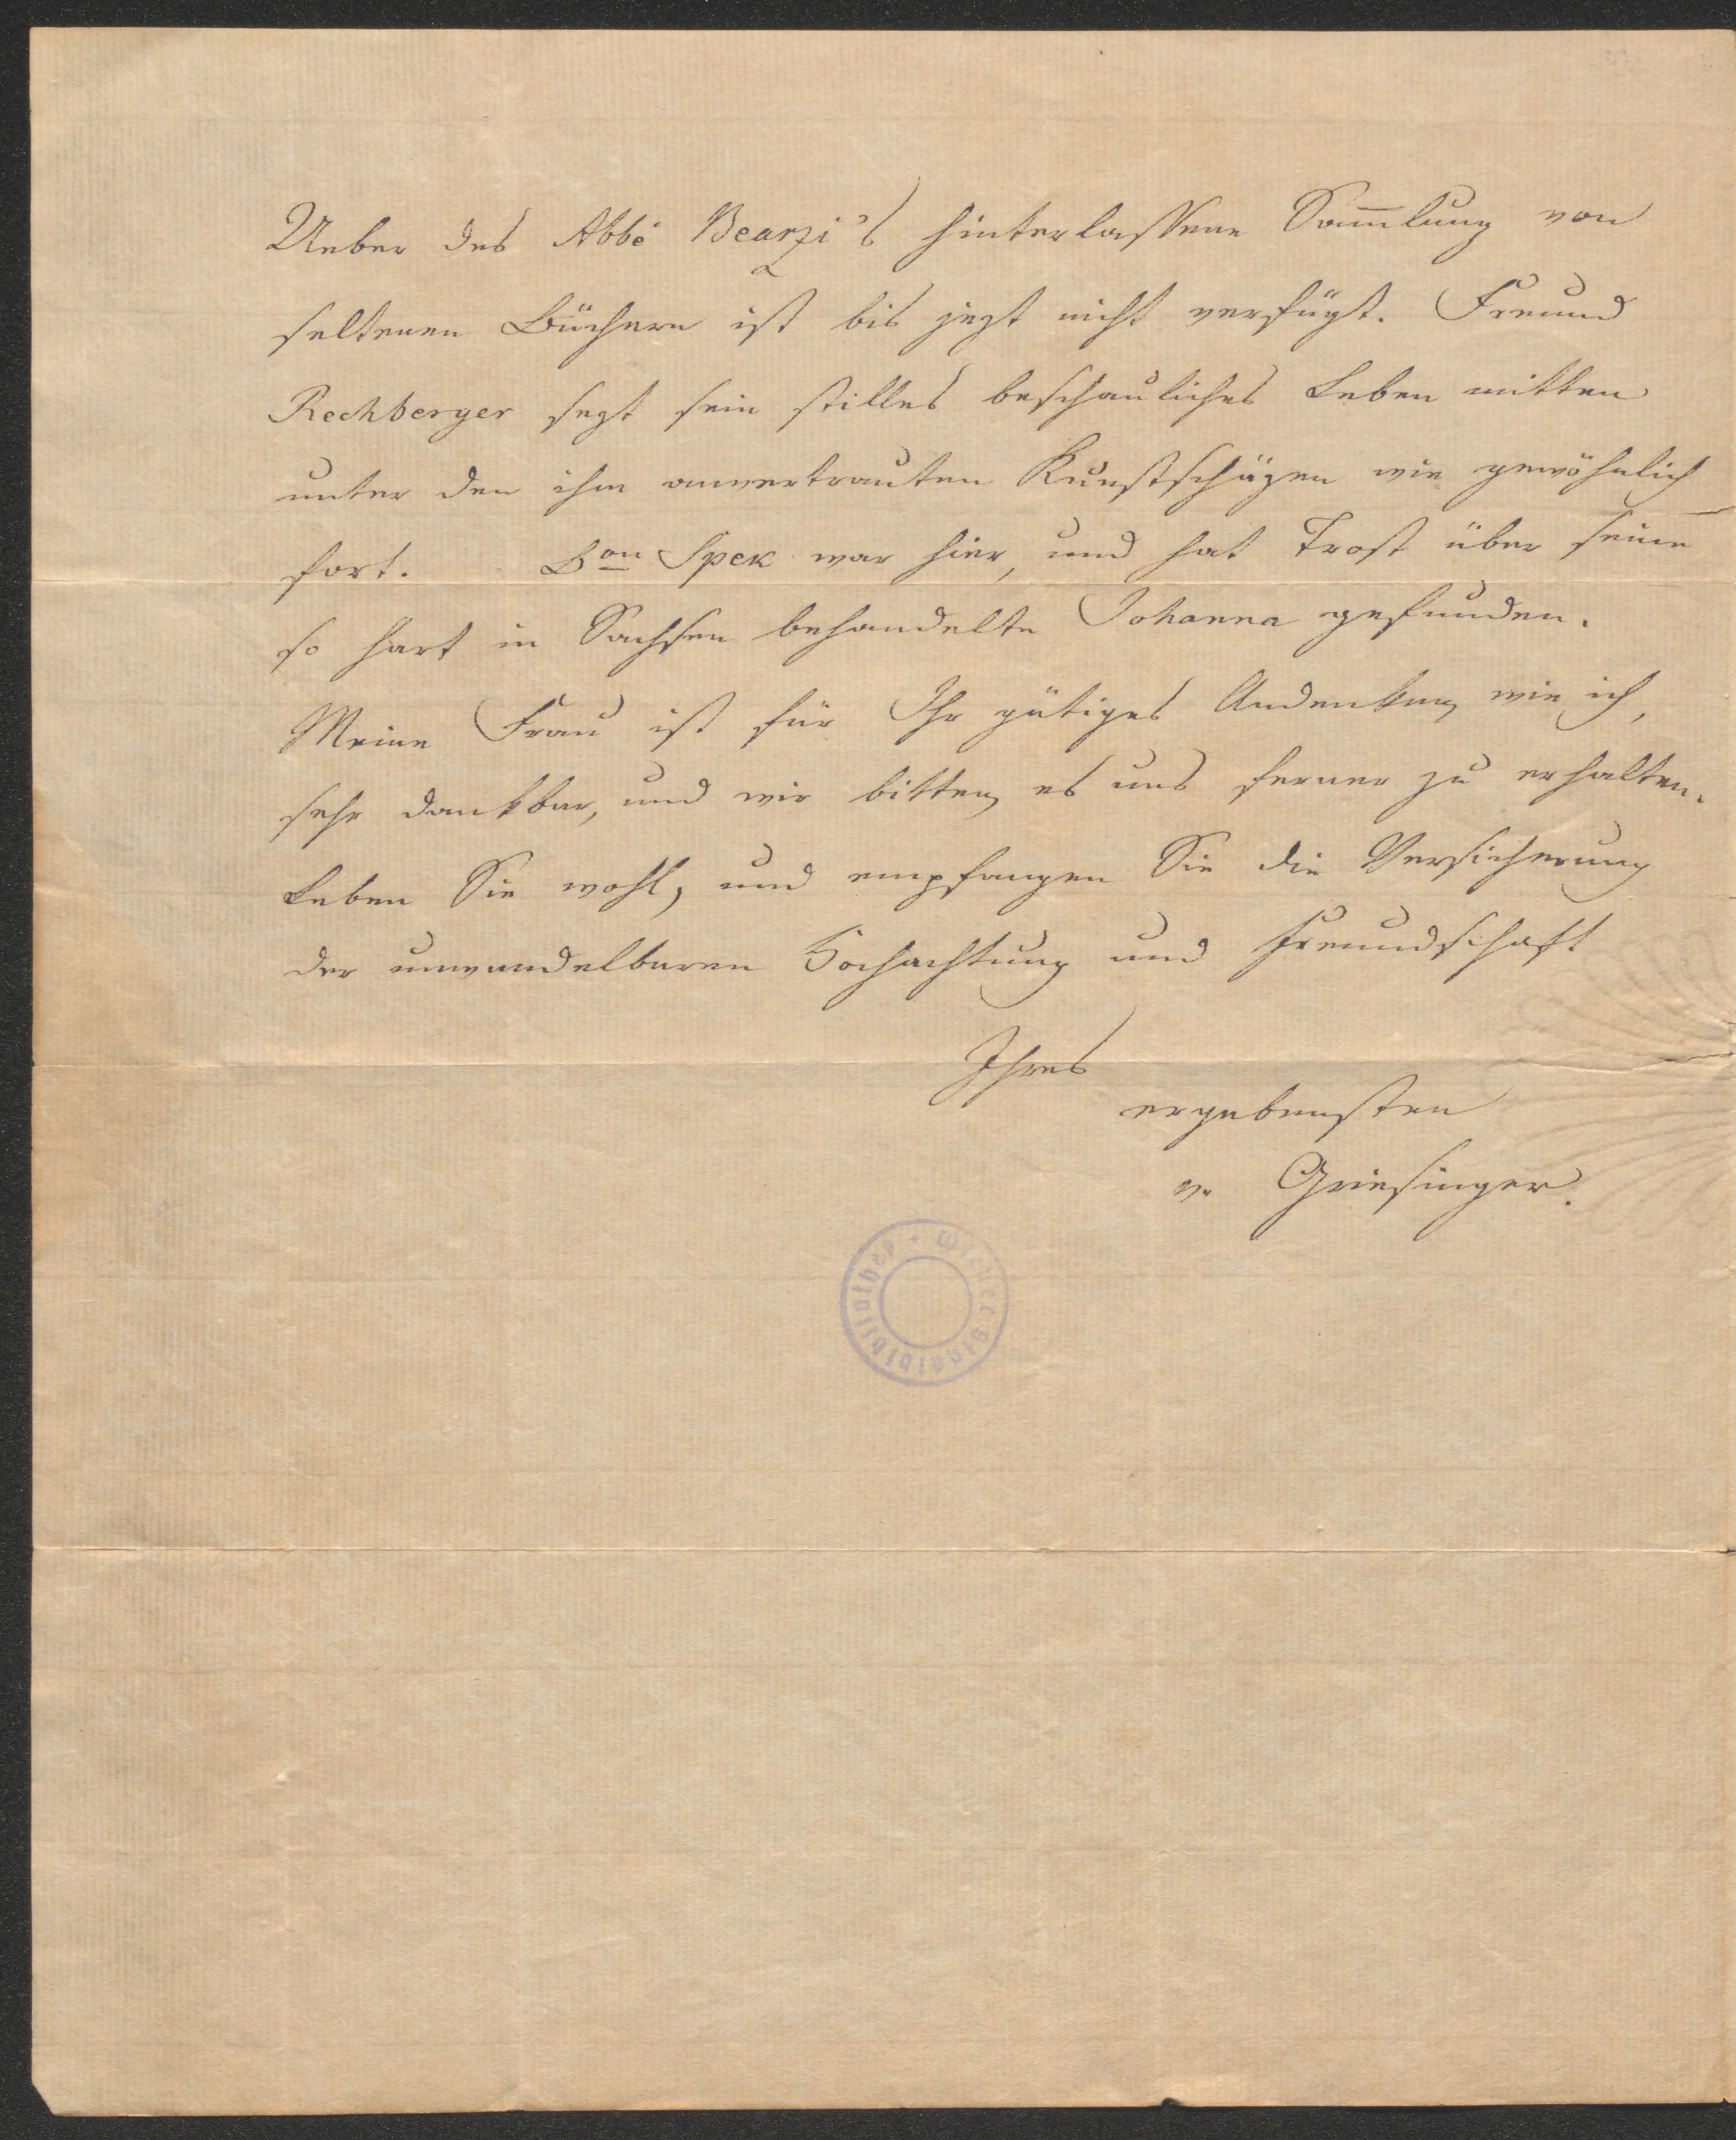 Ueber des Abbé Bearzi's hinterlassene Sam̅lung von
seltenen Büchern ist bis jezt nicht verfügt. Freund
Rechberger sezt sein stilles beschauliches Leben mitten
unter den ihm anvertrauten Kunstschäzen wie gewöhnlich
fort. Bon Spek war hier, und hat Trost über seine
so hart in Sachsen behandelte Johanna gefunden.
Meine Frau ist für Ihr gütiges Andenken, wie ich,
sehr dankbar, und wir bitten, es uns ferner zu erhalten.
Leben Sie wohl, und empfangen Sie die Versicherung
der unwandelbaren Hochachtung und Freundschaft
Ihres
ergebensten
v. Griesinger.
Wiener Stadtbibliothek